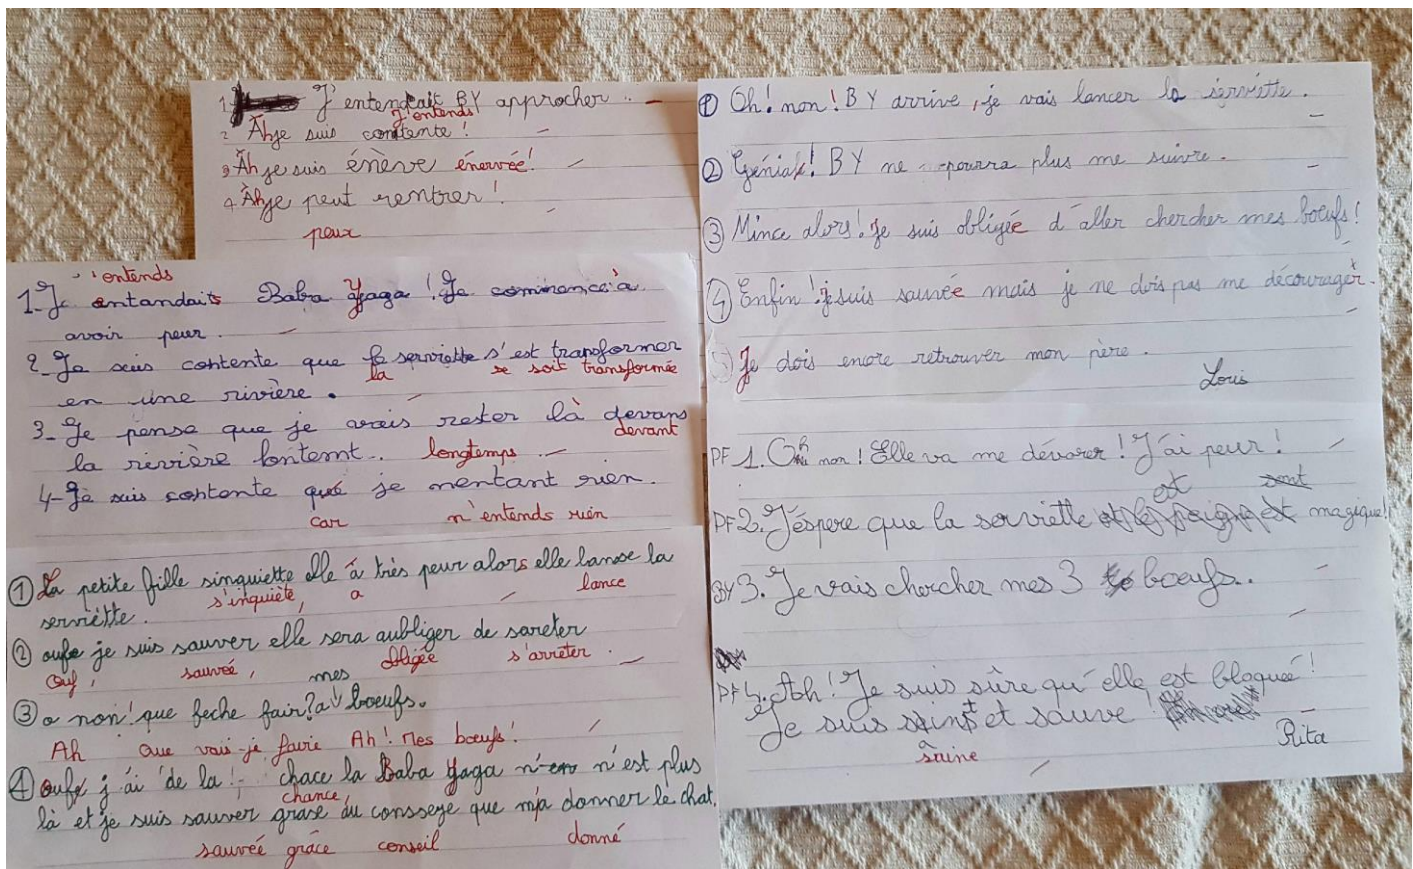 1. J'entendait BY approcher.
J'entends
2 Ah je suis contente !
3 Ah je suis énèvé énervée!
4 Ah je peut rentrer !
peux
'entends
1- Je entandais Baba Yaga ! Je commence à
avoir peur.
2- Je suis contente que la serviette s'est transformer
la se soit transformée
en une rivière.
3- Je pense que je vais rester là devans
devant
la rivière lontemt. longtemps
4- Je suis contente que je mentant rien.
car n'entends rien
① La petite fille sinquiette elle à très peur alors elle lanse la
s'inquiète, a lance
serviètte.
② oufe je suis sauver elle sera aubliger de sareter
Ouf, sauvée, obligée s'arrêter.
mes
③ o non! que feche fair? a boeufs.
Ah Que vais-je faire Ah! Mes boeufs!
④ oufe j'ai de la chace la Baba Yaga n'est plus
chance,
là et je suis sauver grase au consseye que m'a donner le chat.
sauvée grâce conseil donné
① Oh! non! BY arrive, je vais lancer la serviette.
② Génial! BY ne pourra plus me suivre.
③ Mince alors! Je suis obligée d'aller chercher mes boeufs!
④ Enfin! je suis sauvée mais je ne dois pas me décourager.
Je dois encore retrouver mon père.
Loris
PF 1. Oh non! Elle va me dévorer! J'ai peur!
est sont
PF 2. J'éspere que la serviette et le peigne est magique!
BY 3. Je vais chercher mes 3 boeufs..
PF 4. Ah! Je suis sûre qu'elle est bloqueé!
Je suis saint et sauve !
saine
Rita